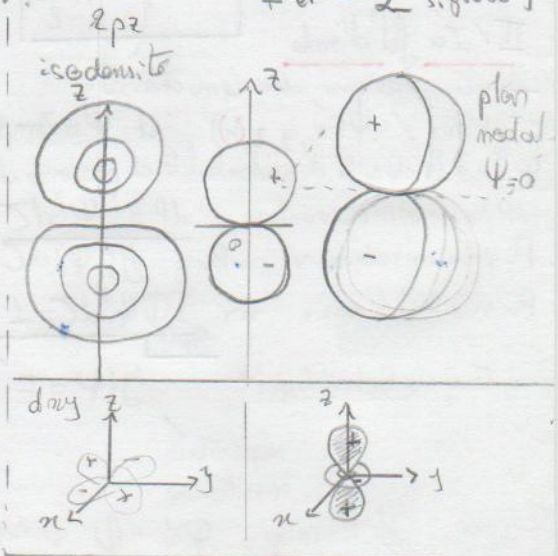 2pz
isodensité
z
z
+
o
-
+
-
plan
nodal
Ψ=0
dxy
z
+
-
-
+
y
x
z
+
-
+
y
x